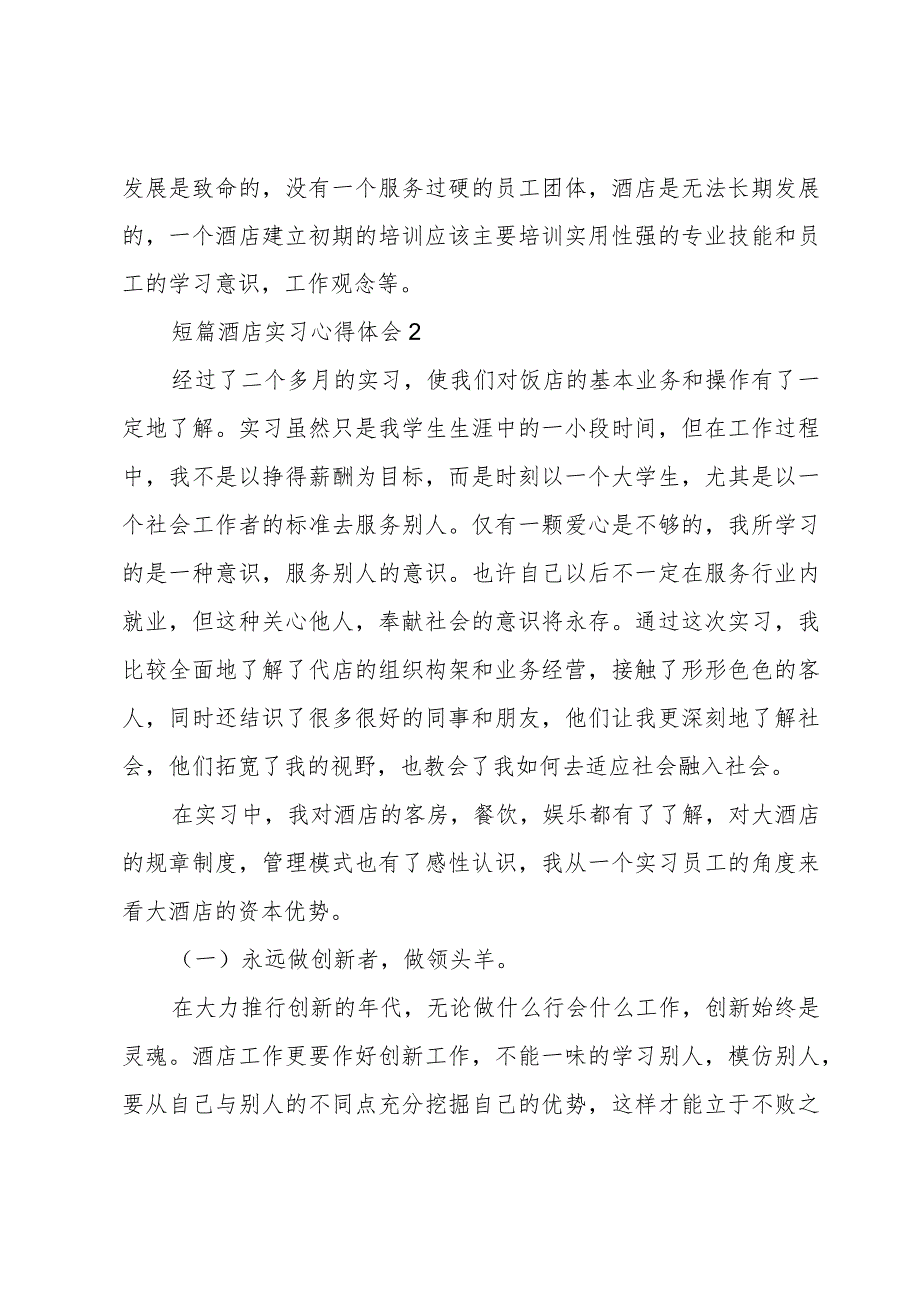 发展是致命的，没有一个服务过硬的员工团体，酒店是无法长期发展
的，一个酒店建立初期的培训应该主要培训实用性强的专业技能和员
工的学习意识，工作观念等。
短篇酒店实习心得体会 2
经过了二个多月的实习，使我们对饭店的基本业务和操作有了一
定地了解。实习虽然只是我学生生涯中的一小段时间，但在工作过程
中，我不是以挣得薪酬为目标，而是时刻以一个大学生，尤其是以一
个社会工作者的标准去服务别人。仅有一颗爱心是不够的，我所学习
的是一种意识，服务别人的意识。也许自己以后不一定在服务行业内
就业，但这种关心他人，奉献社会的意识将永存。通过这次实习，我
比较全面地了解了代店的组织构架和业务经营，接触了形形色色的客
人，同时还结识了很多很好的同事和朋友，他们让我更深刻地了解社
会，他们拓宽了我的视野，也教会了我如何去适应社会融入社会。
在实习中，我对酒店的客房，餐饮，娱乐都有了了解，对大酒店
的规章制度，管理模式也有了感性认识，我从一个实习员工的角度来
看大酒店的资本优势。
（一）永远做创新者，做领头羊。
在大力推行创新的年代，无论做什么行会什么工作，创新始终是
灵魂。酒店工作更要作好创新工作，不能一味的学习别人，模仿别人，
要从自己与别人的不同点充分挖掘自己的优势，这样才能立于不败之